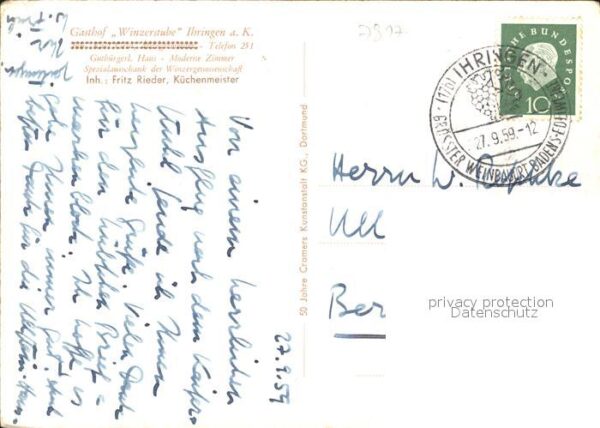 Gasthof „Winzerstube" Ihringen a. K.
Telefon 251
Gutbürgerl. Haus - Moderne Zimmer
Spezialausschank der Winzergenossenschaft
Inh.: Fritz Rieder, Küchenmeister
27.9.59
Von einem herrlichen
Ausflug nach dem Kaiser-
stuhl sende ich Ihnen
herzliche Grüße. Vielen Dank
für den hübschen Brief-
markenblock. Ich hoffe es
geht Ihnen immer gut. Auch
Dank für die
50 Jahre Cramers Kunstanstalt KG., Dortmund
DEUTSCHE BUNDESPOST
10
(17b) IHRINGEN
27.9.59.-12
GRÖSSTER WEINBAUORT BADENS
Herrn W.
Ull
Ber
privacy protection
Datenschutz